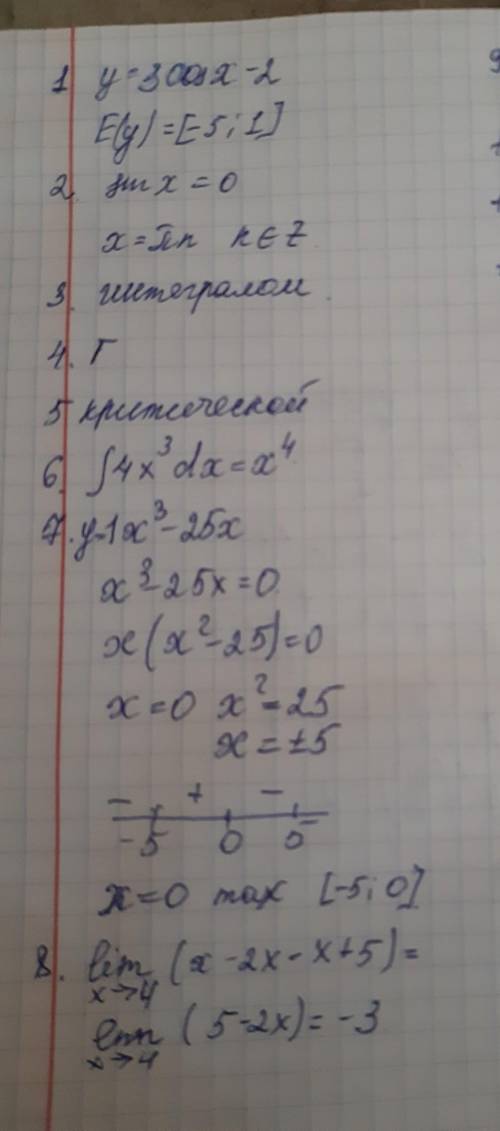 1 y=3cosx-2
E(y)=[-5;1]
2. sin x=0
x=πn n∈Z
3. интегралом
4. Г
5 критической
6. ∫4x³dx=x⁴
7. y=1x³-25x
x³-25x=0
x(x²-25)=0
x=0 x²=25
x=±5
- + -
-5 0 5
x=0 max [-5;0]
8. lim (x-2x-x+5)=
x→4
lim (5-2x)=-3
x→4